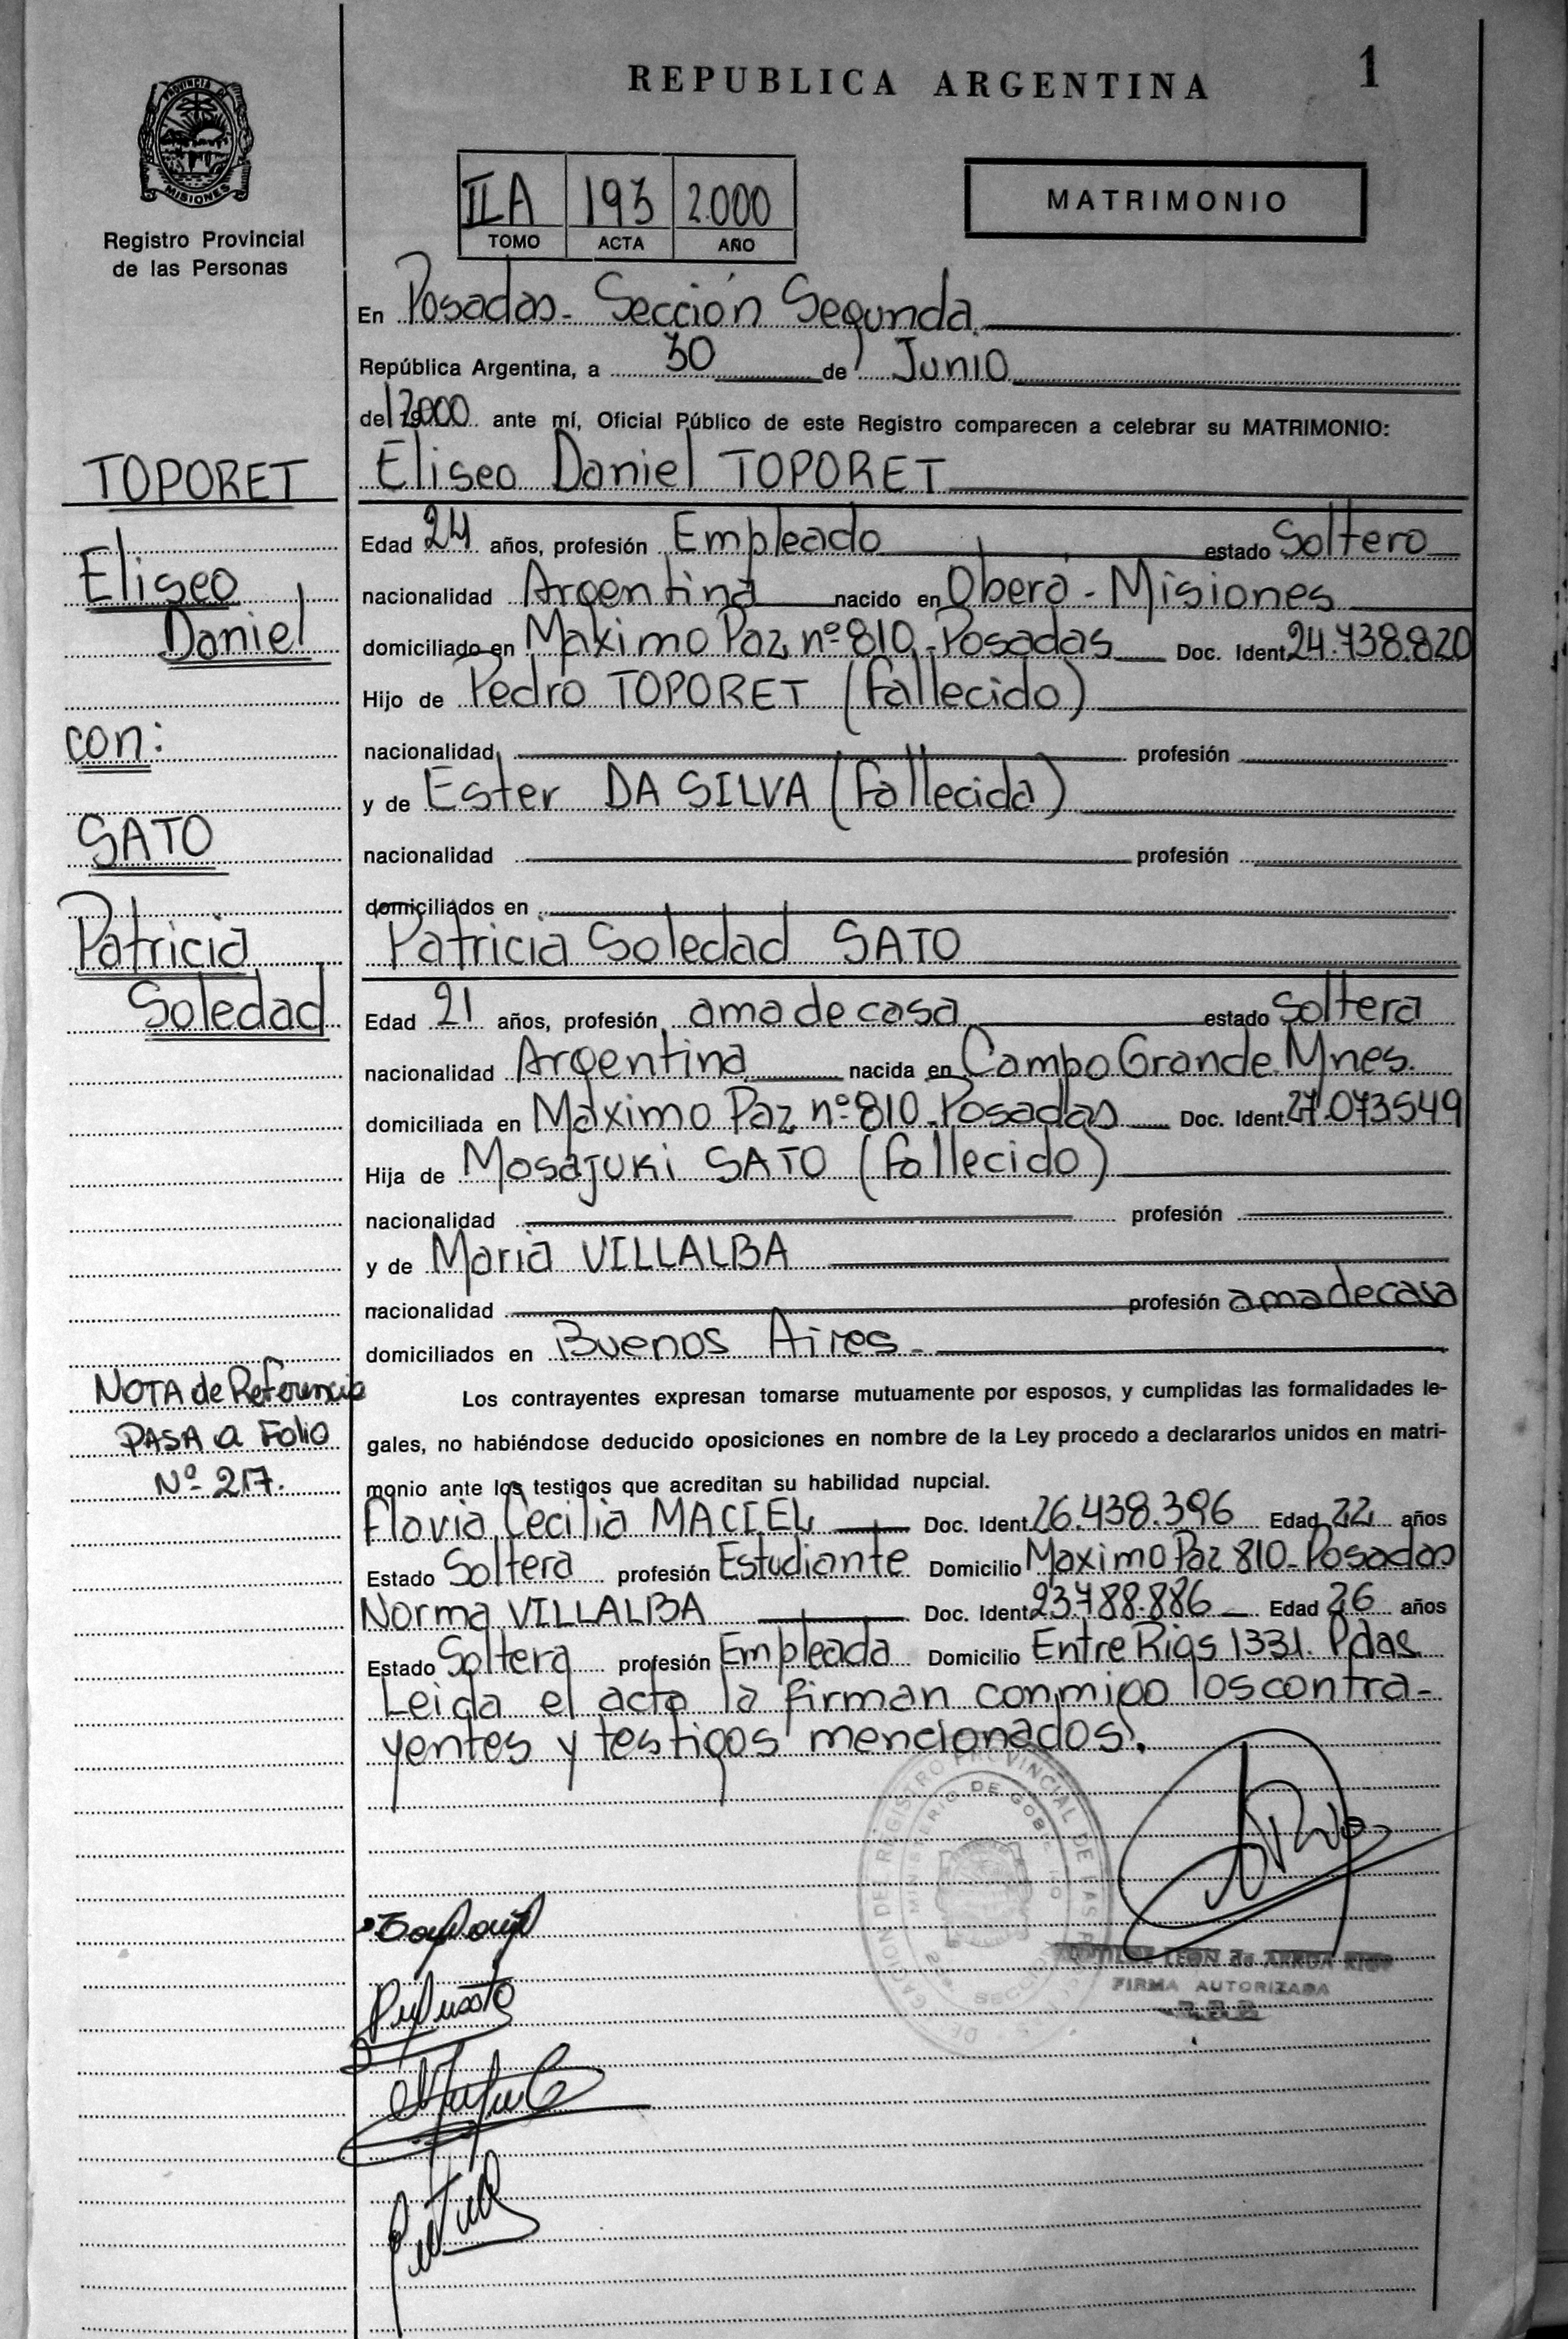 REPUBLICA ARGENTINA
1
PROVINCIA D
MISIONES
Registro Provincial
de las Personas
IIA 193 2.000
TOMO ACTA AÑO
MATRIMONIO
En Posadas - Sección Segunda
República Argentina, a 30 de Junio
de 2000 ante mí, Oficial Público de este Registro comparecen a celebrar su MATRIMONIO:
Eliseo Daniel TOPORET
Edad 24 años, profesión Empleado estado Soltero
nacionalidad Argentina nacido en Oberá - Misiones
domiciliado en Maximo Paz nº 810 - Posadas Doc. Ident. 24.738.820
Hijo de Pedro TOPORET (fallecido)
nacionalidad profesión
y de Ester DA SILVA (fallecida)
nacionalidad profesión
domiciliados en
Patricia Soledad SATO
Edad 21 años, profesión ama de casa estado soltera
nacionalidad Argentina nacida en Campo Grande. Mnes.
domiciliada en Maximo Paz nº 810 - Posadas Doc. Ident. 27.073549
Hija de Mosajuki SATO (fallecido)
nacionalidad profesión
y de Maria VILLALBA
nacionalidad profesión ama de casa
domiciliados en Buenos Aires -
Los contrayentes expresan tomarse mutuamente por esposos, y cumplidas las formalidades le-
gales, no habiéndose deducido oposiciones en nombre de la Ley procedo a declararlos unidos en matri-
monio ante los testigos que acreditan su habilidad nupcial.
Flavia Cecilia MACIEL Doc. Ident. 26.438.396 Edad 22 años
Estado Soltera profesión Estudiante Domicilio Maximo Paz 810 - Posadas
Norma VILLALBA Doc. Ident. 23.788.886 Edad 26 años
Estado Soltera profesión Empleada Domicilio Entre Rios 1331. Pdas.
Leida el acta la firman conmigo los contra-
yentes y testigos mencionados.
TOPORET
Eliseo
Daniel
con:
SATO
Patricia
Soledad
NOTA de Referencia
PASA a Folio
Nº 217.
REGISTRO PROVINCIAL DE LAS
MINISTERIO DE GOB
LEON de
FIRMA AUTORIZADA